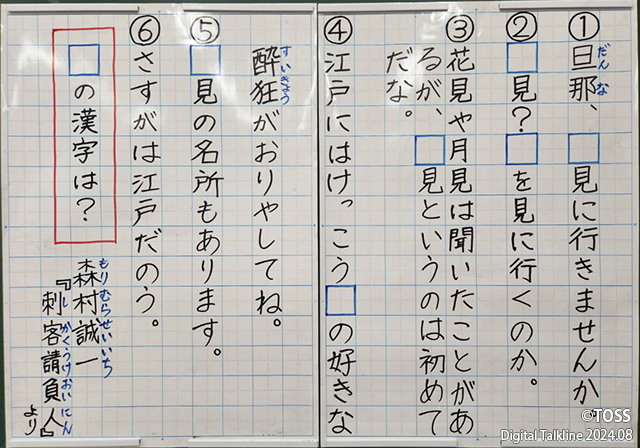 ①旦那、□見に行きませんか。
だんな
②□見？□を見に行くのか。
③花見や月見は聞いたことがあ
るが、□見というのは初めて
だな。
④江戸にはけっこう□の好きな
酔狂がおりやしてね。
すいきょう
⑤□見の名所もあります。
⑥さすがは江戸だのう。
□の漢字は？
森村誠一
もりむらせいいち
『刺客請負人』
しかくうけおいにん
より
©TOSS
Digital Talkline 2024.08